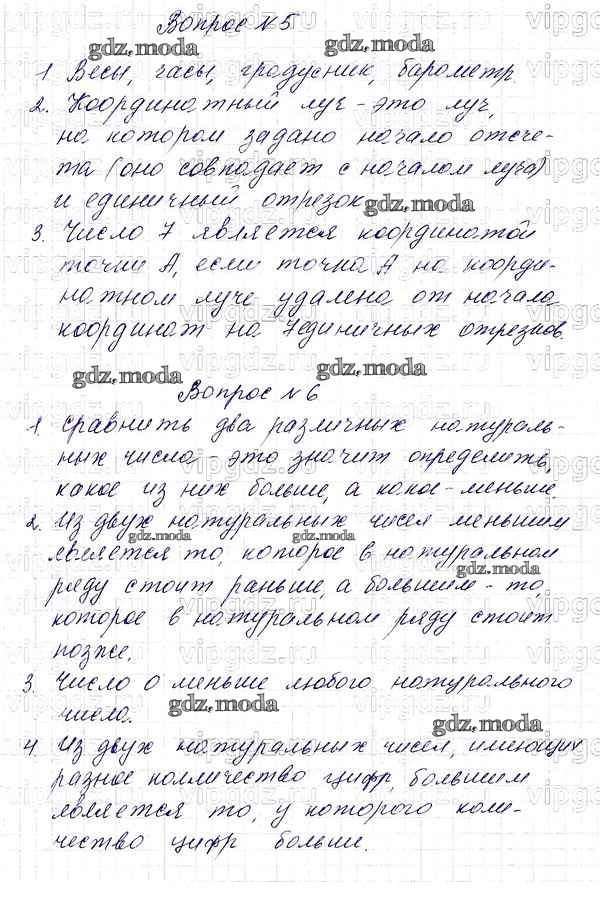 Вопрос №5
1. Весы, часы, градусник, барометр.
2. Координатный луч - это луч,
на котором задано начало отсче-
та (оно совпадает с началом луча)
и единичный отрезок
3. Число 7 является координатой
точки А, если точка А на коорди-
натном луче удалена от начала
координат на 7 единичных отрезков.
Вопрос №6
1. Сравнить два различных натураль-
ных числа - это значит определить,
какое из них больше, а какое - меньше.
2. Из двух натуральных чисел меньшим
является то, которое в натуральном
ряду стоит раньше, а большим - то,
которое в натуральном ряду стоит
позже.
3. Число 0 меньше любого натурального
числа.
4. Из двух натуральных чисел, имеющих
разное колличество цифр, большим
является то, у которого коли-
чество цифр больше.
gdz.moda
gdz.moda
gdz.moda
gdz.moda
gdz.moda
gdz.moda
gdz.moda
gdz.moda
gdz.moda
gdz.moda
vipgdz.ru